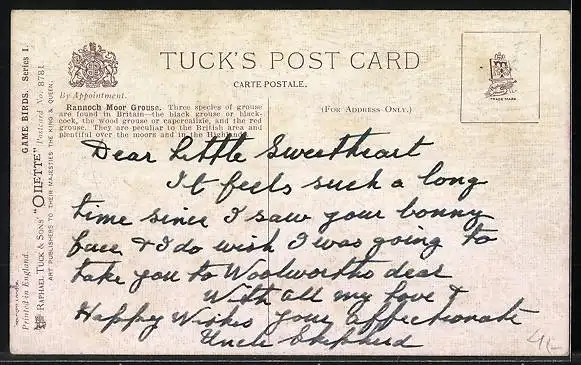 TUCK'S POST CARD
CARTE POSTALE.
(FOR ADDRESS ONLY.)
By Appointment.
TRADE MARK
Rannoch Moor Grouse. Three species of grouse
are found in Britain—the black grouse or black-
cock, the wood grouse or capercailzie, and the red
grouse. They are peculiar to the British area and
plentiful over the moors and in the Highlands.
GAME BIRDS. Series I.
RAPHAEL TUCK & SONS' "OILETTE" Postcard No. 8781.
ART PUBLISHERS TO THEIR MAJESTIES THE KING & QUEEN.
Printed in England.
Dear Little Sweetheart
It feels such a long
time since I saw your bonny
face & I do wish I was going to
take you to Woolworths dear
With all my love &
Happy Wishes your affectionate
Uncle Shepherd